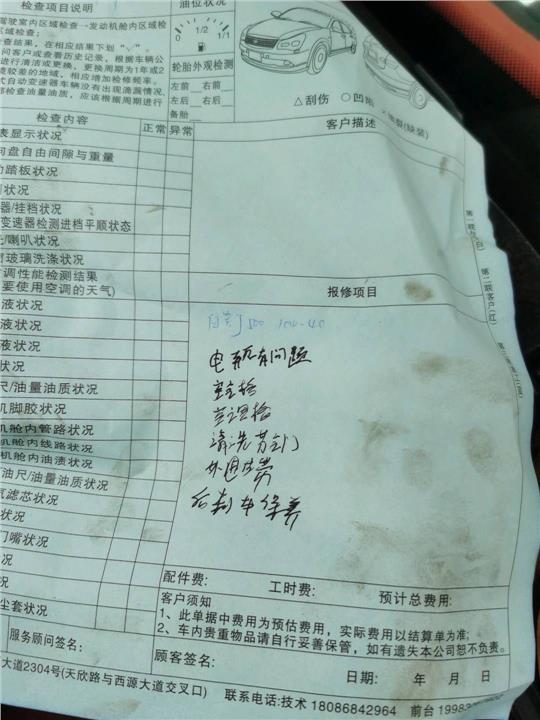 检查项目说明
油位状况
驾驶室内区域检查→发动机舱内区域检
区域检查;
查结果,在相应结果下划"√"。
问客户或查看历史记录,根据车辆公
进行清洁或更换,更换周期为1年或2
境较差的地域,相应增加检修频率。
式自动变速器车辆没有出现渗漏情况,
部检查油量油质,应该根据周期进行
0 1/2 1/1
轮胎外观检测
左前 右前
左后 右后
备胎
△刮伤 ○凹陷
检查内容
正常 异常
客户描述
表显示状况
向盘自由间隙与重量
动踏板状况
状况
器/挂档状况
变速器检测进档平顺状态
/喇叭状况
窗玻璃洗涤状况
调性能检测结果
要使用空调的天气)
报修项目
液状况
液状况
液状况
状况
尺/油量油质状况
机脚胶状况
机舱内管路状况
机舱内线路状况
机舱内油渍状况
油尺/油量油质状况
气滤芯状况
状况
门嘴状况
况
况
尘套状况
500 10w-40
电瓶有问题
空调格
清洗节气门
后刹车保养
第二联客户(红)
配件费: 工时费: 预计总费用:
客户须知
1、此单据中费用为预估费用,实际费用以结算单为准;
2、车内贵重物品请自行妥善保管,如有遗失本公司恕不负责。
服务顾问签名:
顾客签名: 日期: 年 月 日
大道2304号(天欣路与西源大道交叉口) 联系电话:技术 18086842964 前台